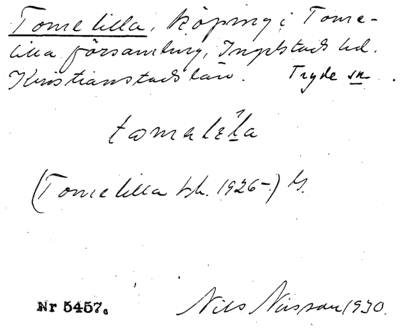 Tomelilla, köping i Tome-
lilla församling, Ingelstads hd.
Kristianstads län. Tryde sn.
tomalẹ́la
(Tomelilla hk. 1926-)
Nr 5457.
Nils Nilsson 1930.